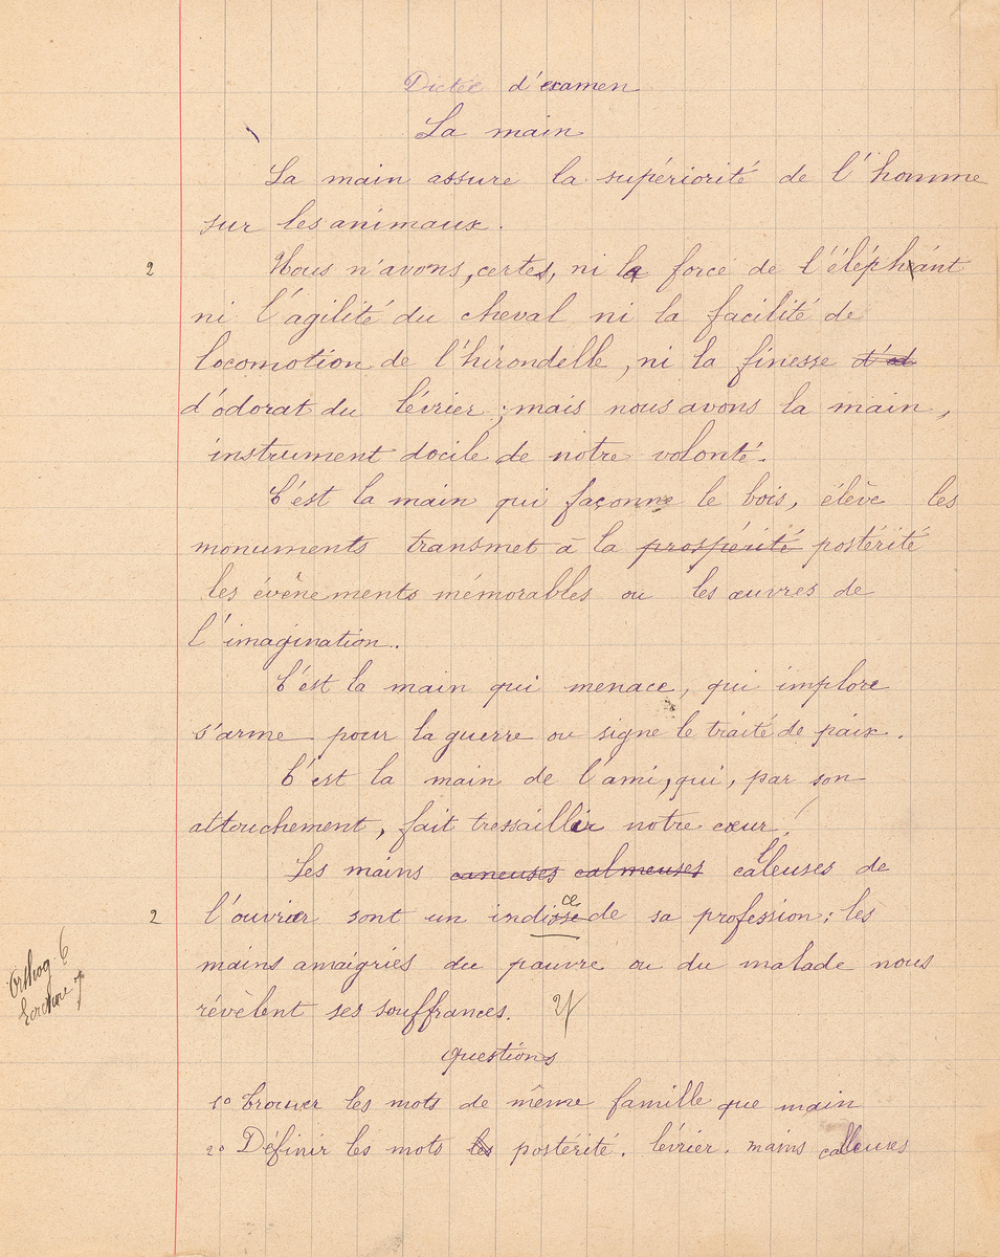 Dictée d'examen
La main
La main assure la supériorité de l'homme
sur les animaux.
2 Nous n'avons, certes, ni la force de l'éléphant
ni l'agilité du cheval ni la facilité de
locomotion de l'hirondelle, ni la finesse d'od
d'odorat du lévrier ; mais nous avons la main,
instrument docile de notre volonté.
C'est la main qui façonne le bois, élève les
monuments transmet à la prospérité postérité
les évènements mémorables ou les œuvres de
l'imagination.
C'est la main qui menace, qui implore
s'arme pour la guerre ou signe le traité de paix.
C'est la main de l'ami, qui, par son
attouchement, fait tressaillir notre cœur !
Les mains caneuses calmeuses caleuses de
ce
2 l'ouvrier sont un indisse de sa profession ; les
mains amaigries du pauvre ou du malade nous
révèlent ses souffrances. 4
Orthog 6
Ecriture 7
Questions
1° Trouver les mots de même famille que main
2° Définir les mots les postérité. lévrier. mains calleuses